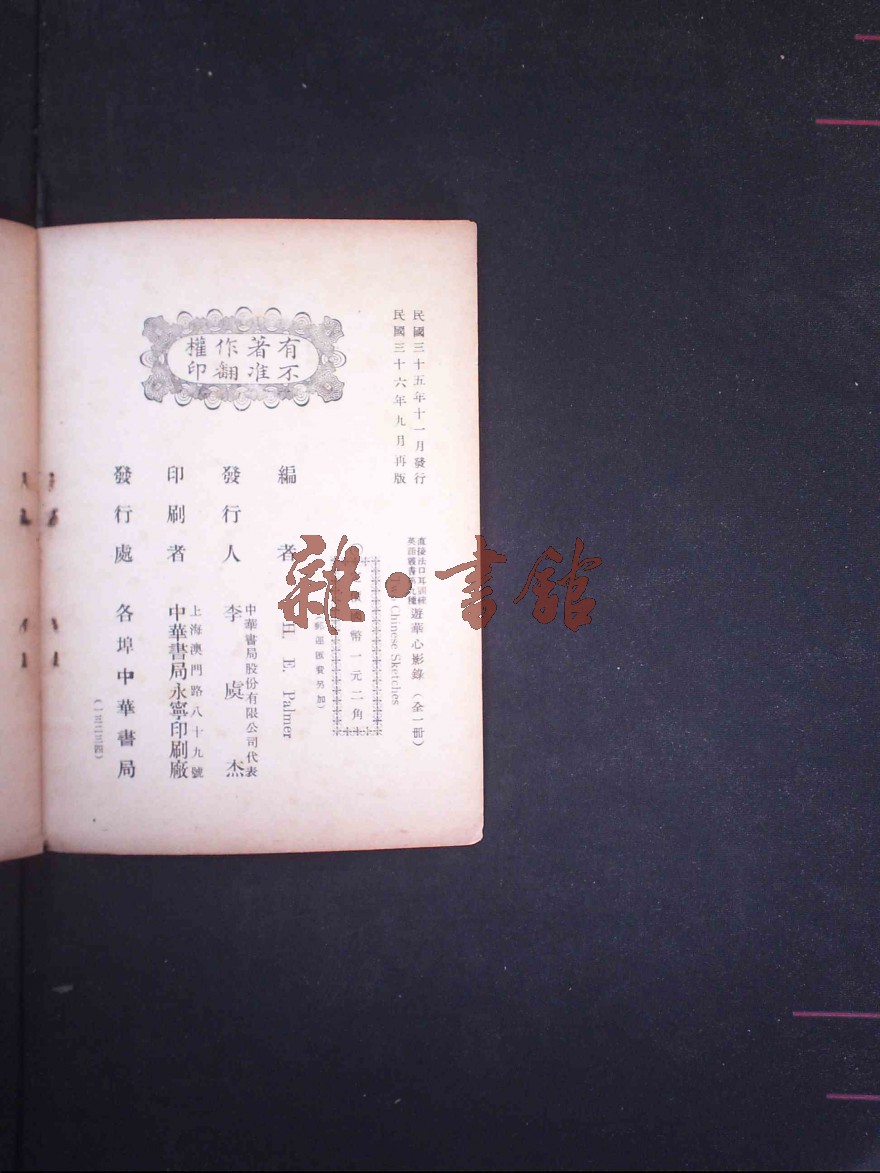 民國三十五年十一月發行
民國三十六年九月再版
直接法口耳訓練
英語叢書第九種
遊華心影錄（全一冊）
Chinese Sketches
幣一元二角
郵運匯費另加）
有著作權
不准翻印
編者 H. E. Palmer
發行人 李虞杰
中華書局股份有限公司代表
印刷者 中華書局永寧印刷廠
上海澳門路八十九號
發行處 各埠中華書局
（一三二三四）
雜·書館